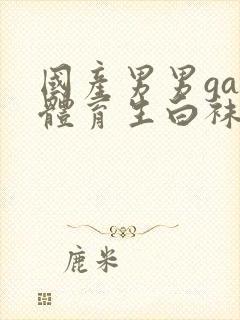 國產男男ga
體育生白袜
鹿米